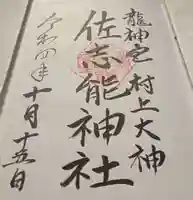 龍神宮 村上大神
佐志能神社
令和四年
十月十五日